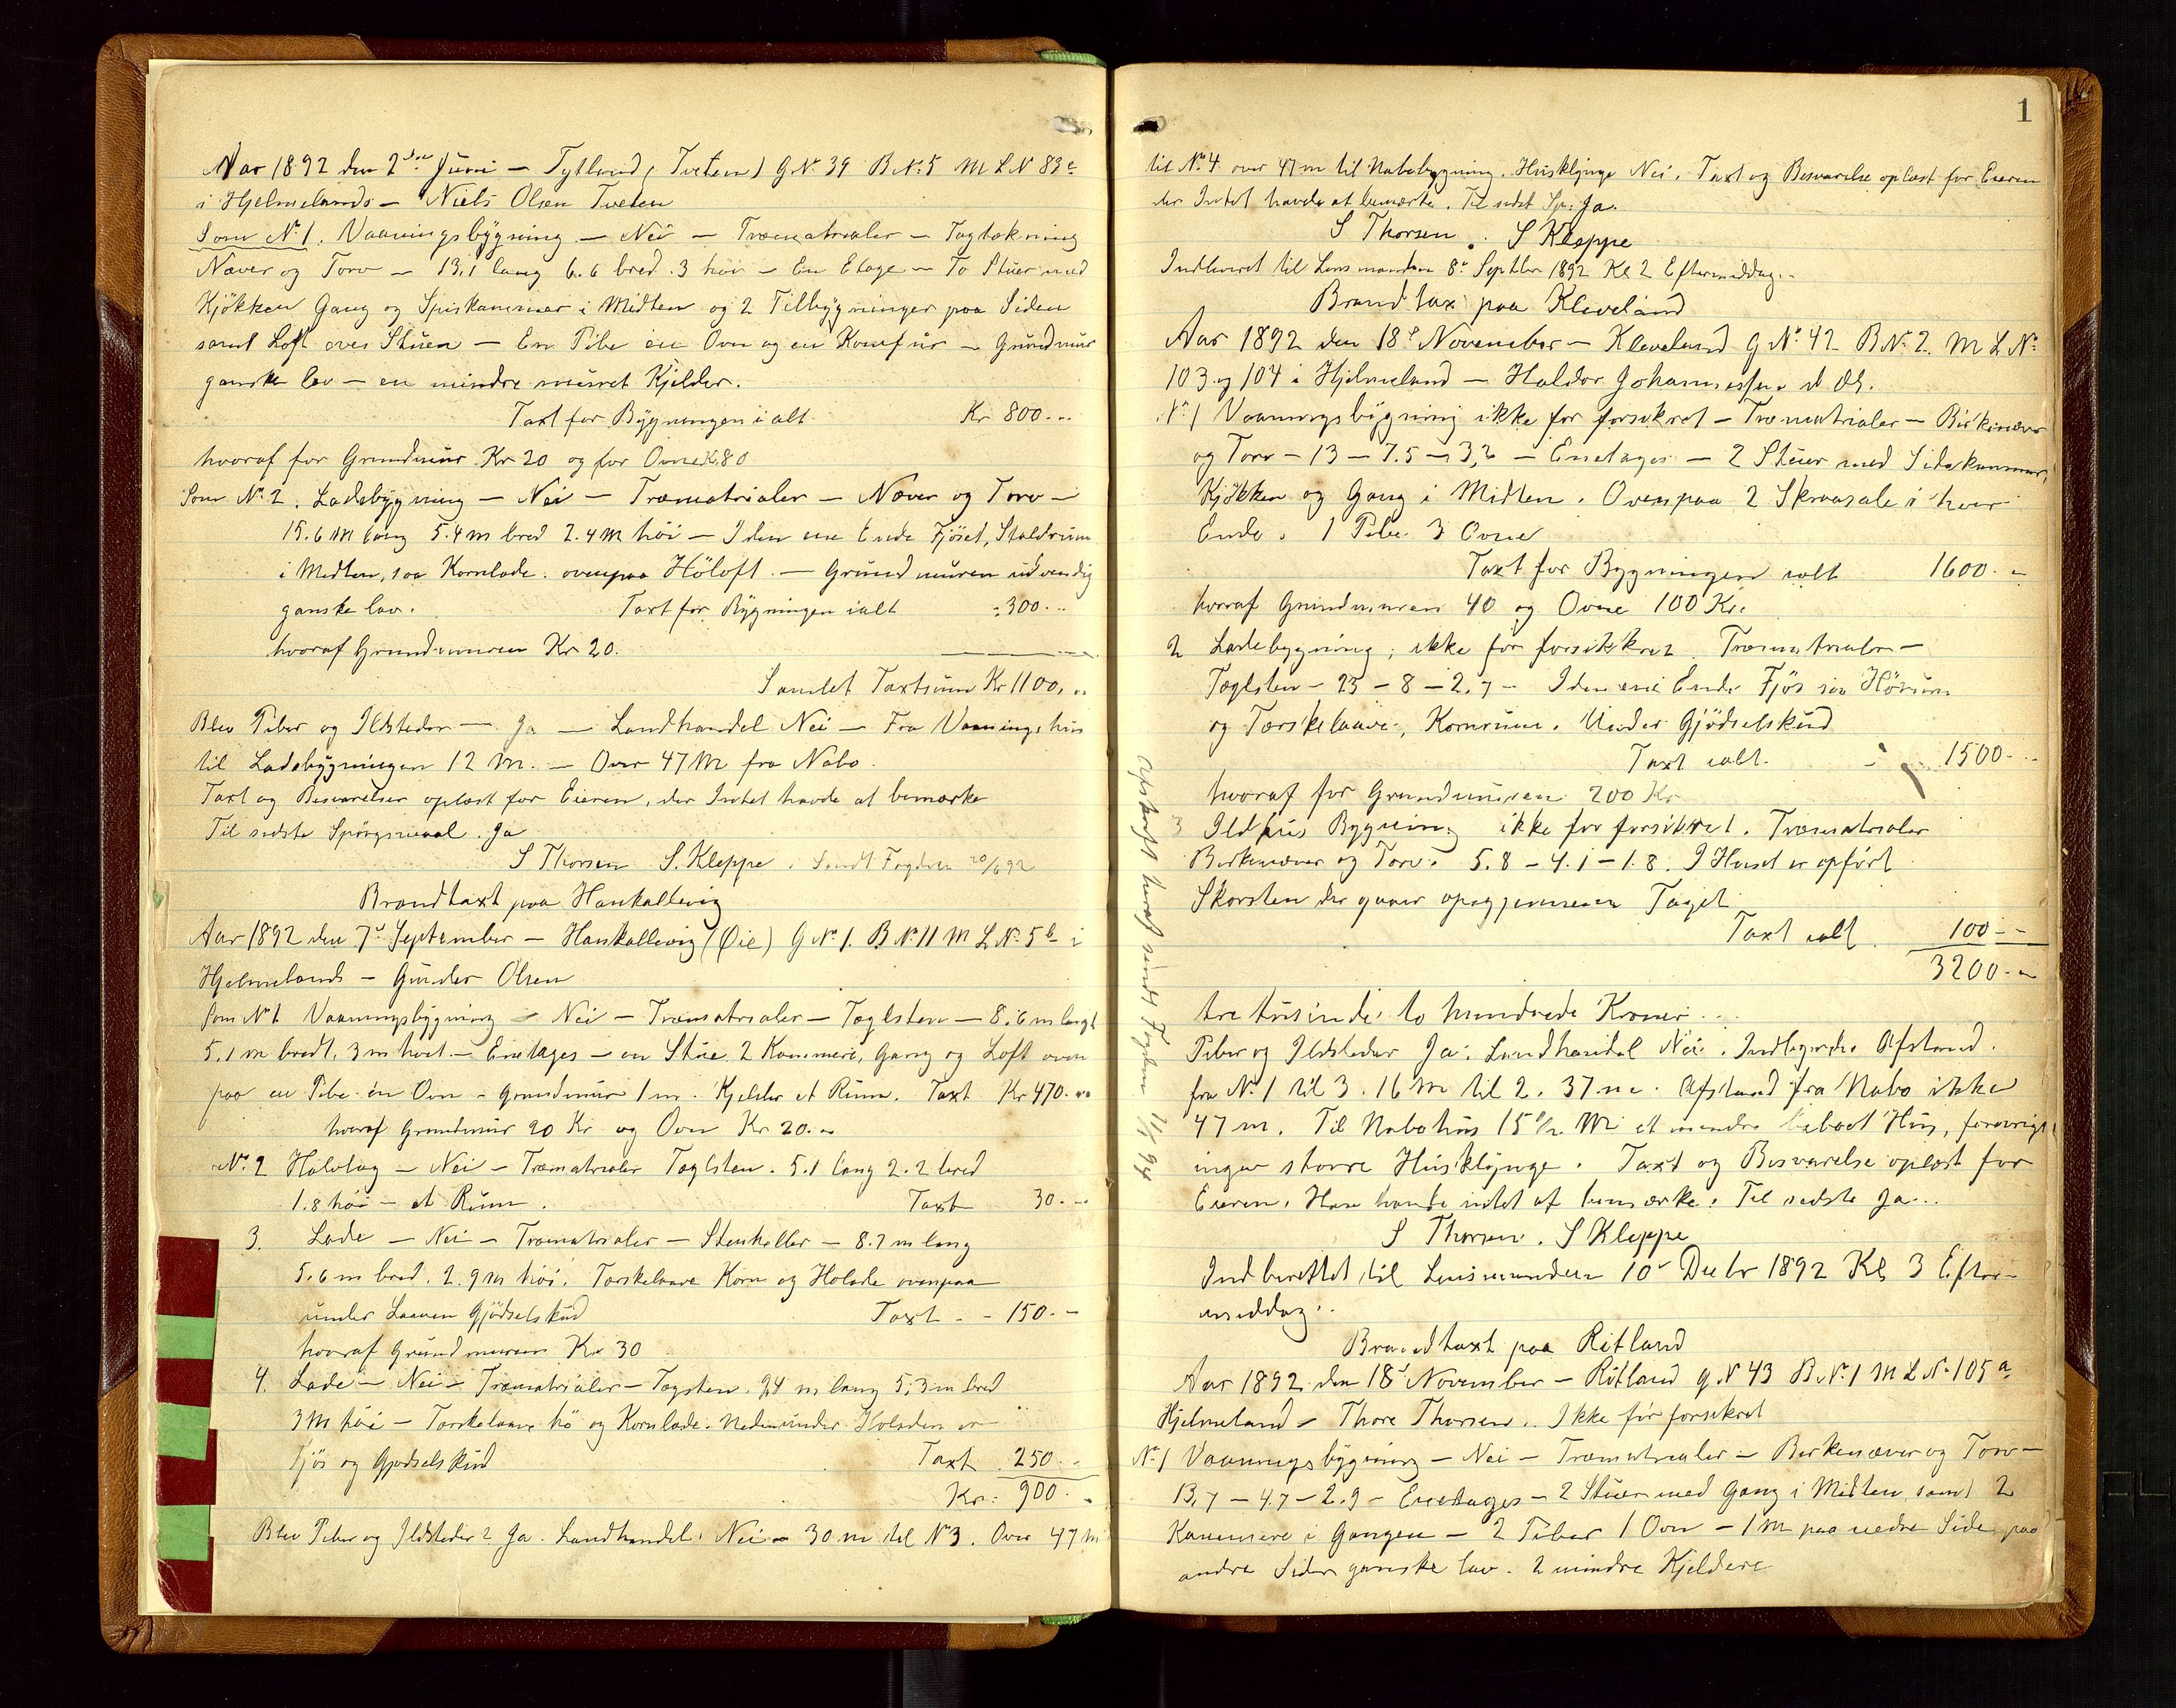 Aar 1892 den 2den Juni – Tytland (Tveten) GNr 39 BNr 5 M L N 83c
i Hjelmelands – Niels Olsen Tveten
Som Nr 1. Vaaningsbygning – Nei – Træmatrialer – Tagtækning
Næver og Torv – 13,1 lang 6.6 bred 3 høi – En Etage – To Stuer med
Kjøkken Gang og Spiskammer i Midten og 2 Tilbygninger paa Siden
samt Loft over Stuen – En Pibe en Ovn og en Komfur – Grundmur
ganske lav – en mindre muret Kjelder.
Taxt for Bygningen i alt Kr 800.--
hvoraf for Grundmur Kr 20 og for Ovne Kr 80
Som Nr 2. Ladebygning – Nei – Træmatrialer – Næver og Torv –
15.6 m lang 5.4 m bred 2.4 m høi – I den ene Ende Fjöset, Staldrum
i Midten, saa Kornlade. ovenpaa Höloft. – Grundmuren udvendig
ganske lav. Taxt for Bygningen ialt - 300.--
hvoraf Grundmuren Kr 20.
Samlet Taxtsum Kr 1100. --
Blev Piber og Ildsteder – Ja – Landhandel Nei – Fra Vaaningshus
til Ladebygningen 12 M. – Over 47 M fra Nabo.
Taxt og Besvarelser oplæst for Eieren, der Intet havde at bemærke
Til sidste Spørgsmaal. Ja
S Thorsen S. Kleppe. Sendt Fogden 20/6 92
Brandtaxt paa Hankallevig
Aar 1892 den 7de September – Hankallevig (Øie) G Nr 1. B Nr 11 M L Nr 5b i
Hjelmelands – Gunder Olsen
Som Nr 1 Vaaningsbygning – Nei – Træmatrialer – Taglsten – 8.6 m langt
5.1 m bredt. 3 m høit – Enetages – en Stue 2 Kammere, Gang og Loft oven
paa en Pibe en Ovn – Grundmur 1 m. Kjelder et Rum. Taxt Kr 470. --
hvoraf Grundmur 20 Kr og Ovn Kr 20. --
Nr 2 Halvtag – Nei – Træmatrialer Taglsten. 5.1 lang 2.2 bred
1.8 høi – et Rum. Taxt 30. --
3. Lade – Nei – Træmatrialer – Stenheller – 8.7 m lang
5.6 m bred. 2.9 m høi. Tærskelaave Korn og Hølade ovenpaa
under Laaven Gjødselskud Taxt - - 150. -
hvoraf Grundmuren Kr 30
4. Lade – Nei – Træmatrialer – Tagsten. 9,4 m lang 5,3 m bred
3 M høi – Tærskelaave hø og Kornlade. Nedenunder Høladen er
fjös og Gjødselskud Taxt 250. -
Kr: 900. -
Blev Piber og Ildsteder? Ja. Landhandel. Nei – 30 m til Nr 3. Over 47 m
1
til Nr 4 over 47 m til Nabobygning. Husklynge Nei. Taxt og Besvarelse oplæst for Eieren
der Intet havde at bemærke. Til sidst Sp: Ja.
S Thorsen. S Kleppe
Indleveret til Lensmanden 8de Septbr 1892 Kl 2 Eftermiddag.
Brandtax paa Kleveland
Aar 1892 den 18de November – Kleveland G Nr 42 B Nr 2. M L Nr
103 og 104 i Hjelmeland – Haldor Johannessen
Nr 1 Vaaningsbygning ikke før forsikret – Træmatrialer – Birkenæver
og Torv – 13 – 7.5 – 3,2 – Enetages – 2 Stuer med Sidekammer,
Kjökken og Gang i Midten. Ovenpaa 2 Skraasale i hver
Ende. 1 Pibe 3 Ovne
Taxt for Bygningen ialt 1600. -
hvoraf Grundmuren 40 og Ovne 100 Kr.
2 Ladebygning; ikke før forsikkret Træmatrialer –
Taglsten – 23 – 8 – 2.7 – I den ene Ende Fjös saa Hörum
og Tærskelaave, Kornrum. Under Gjödselskud
Taxt ialt. 1500. --
hvoraf for Grundmuren 200 Kr
3 Ildhus Bygning ikke før forsikret. Træmatrialer
Birkenæver og Torv. 5.8 – 4.1 – 1.8. I Huset er opført
Skorsten der gaaer opigjennem Taget
Taxt ialt. 100 - -
3200. -
tre tusinde to hundrede Kroner
Piber og Ildsteder Ja. Landhandel Nei. Indbyrdes Afstand.
fra Nr 1 til 3. 16 m til 2. 37 m. Afstand fra Nabo ikke
47 m. Til Nabohus 15 1/2 M et mindre beboet Hus, forøvrigt
ingen større Husklynge. Taxt og Besvarelse oplæst for
Eieren. Han havde intet at bemærke. Til sidste Ja.
S Thorsen. S Kleppe
Indberettet til Lensmanden 10de Decbr 1892 Kl 3 Efter-
middag.
Brandtaxt paa Ritland
Aar 1892 den 18de November – Ritland G N 43 B Nr 1 M L Nr 105 a
Hjelmeland – Thore Thorsen. Ikke før forsikret
Nr 1 Vaaningsbygning – Nei – Træmatrialer – Birkenæver og Torv –
13,7 – 4.7 – 2.9 – Enetages – 2 Stuer med Gang i Midten, samt 2
Kammere i Gangen – 2 Piber 1 Ovn – 1 m paa nedre Side, paa
andre Sider ganske lav. 2 mindre Kjeldere
Afskrift heraf sendt Fogden 94